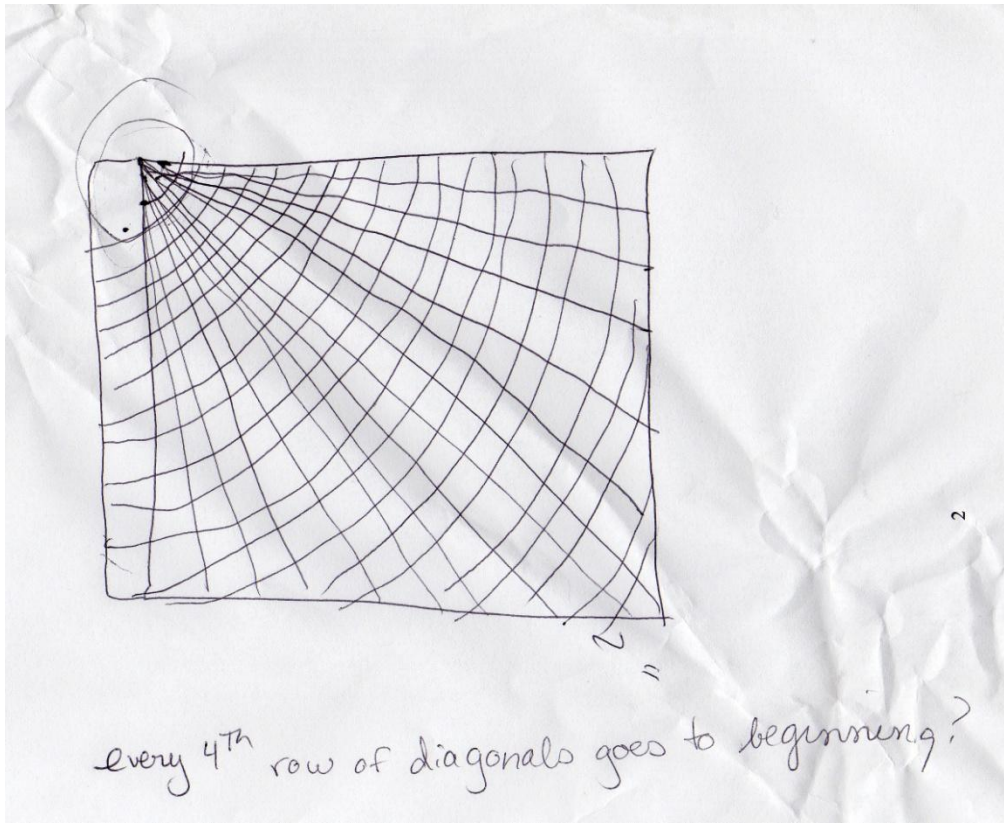 2
2"
every 4th row of diagonals goes to beginning?